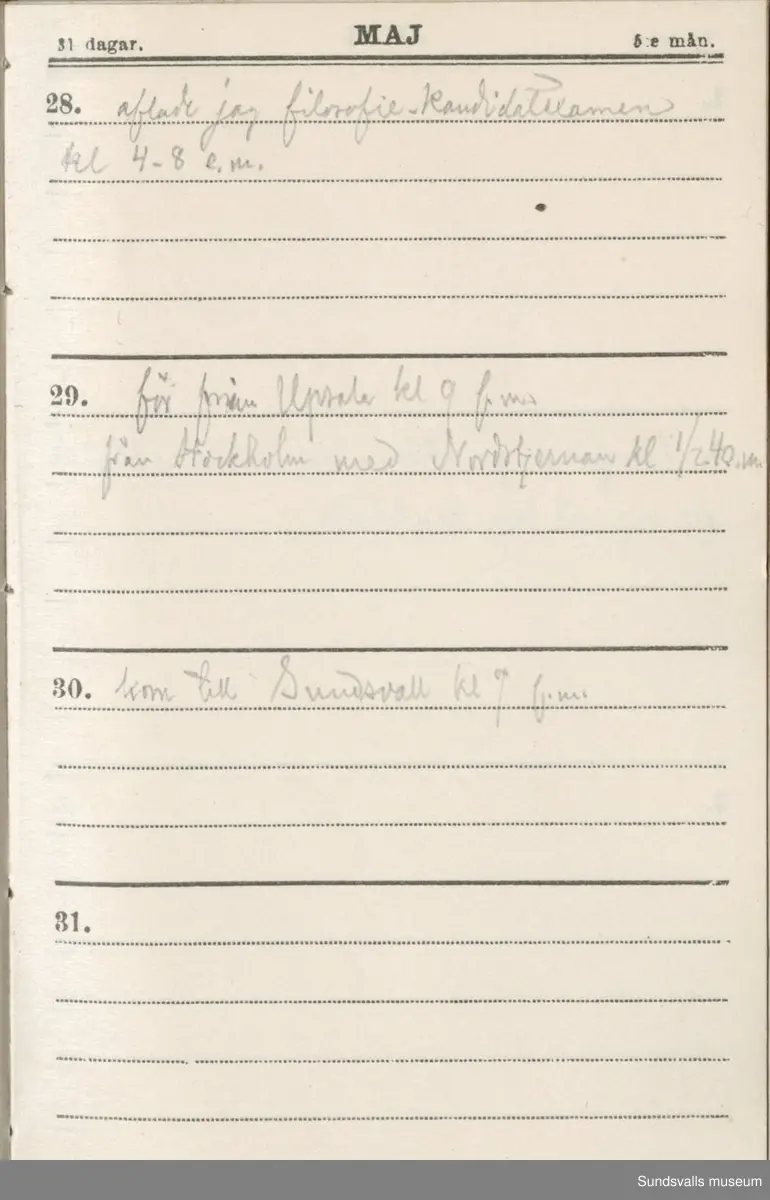 31 dagar. MAJ 5:e mån.
28. aflade jag filosofie-kandidatexamen
kl 4-8 e.m.
29. för från Upsala kl 9 f.m.
från Stockholm med Nordstjernan kl 1/2 4 e.m.
30. kom till Sundsvall kl 9 f.m.
31.
Sundsvalls museum